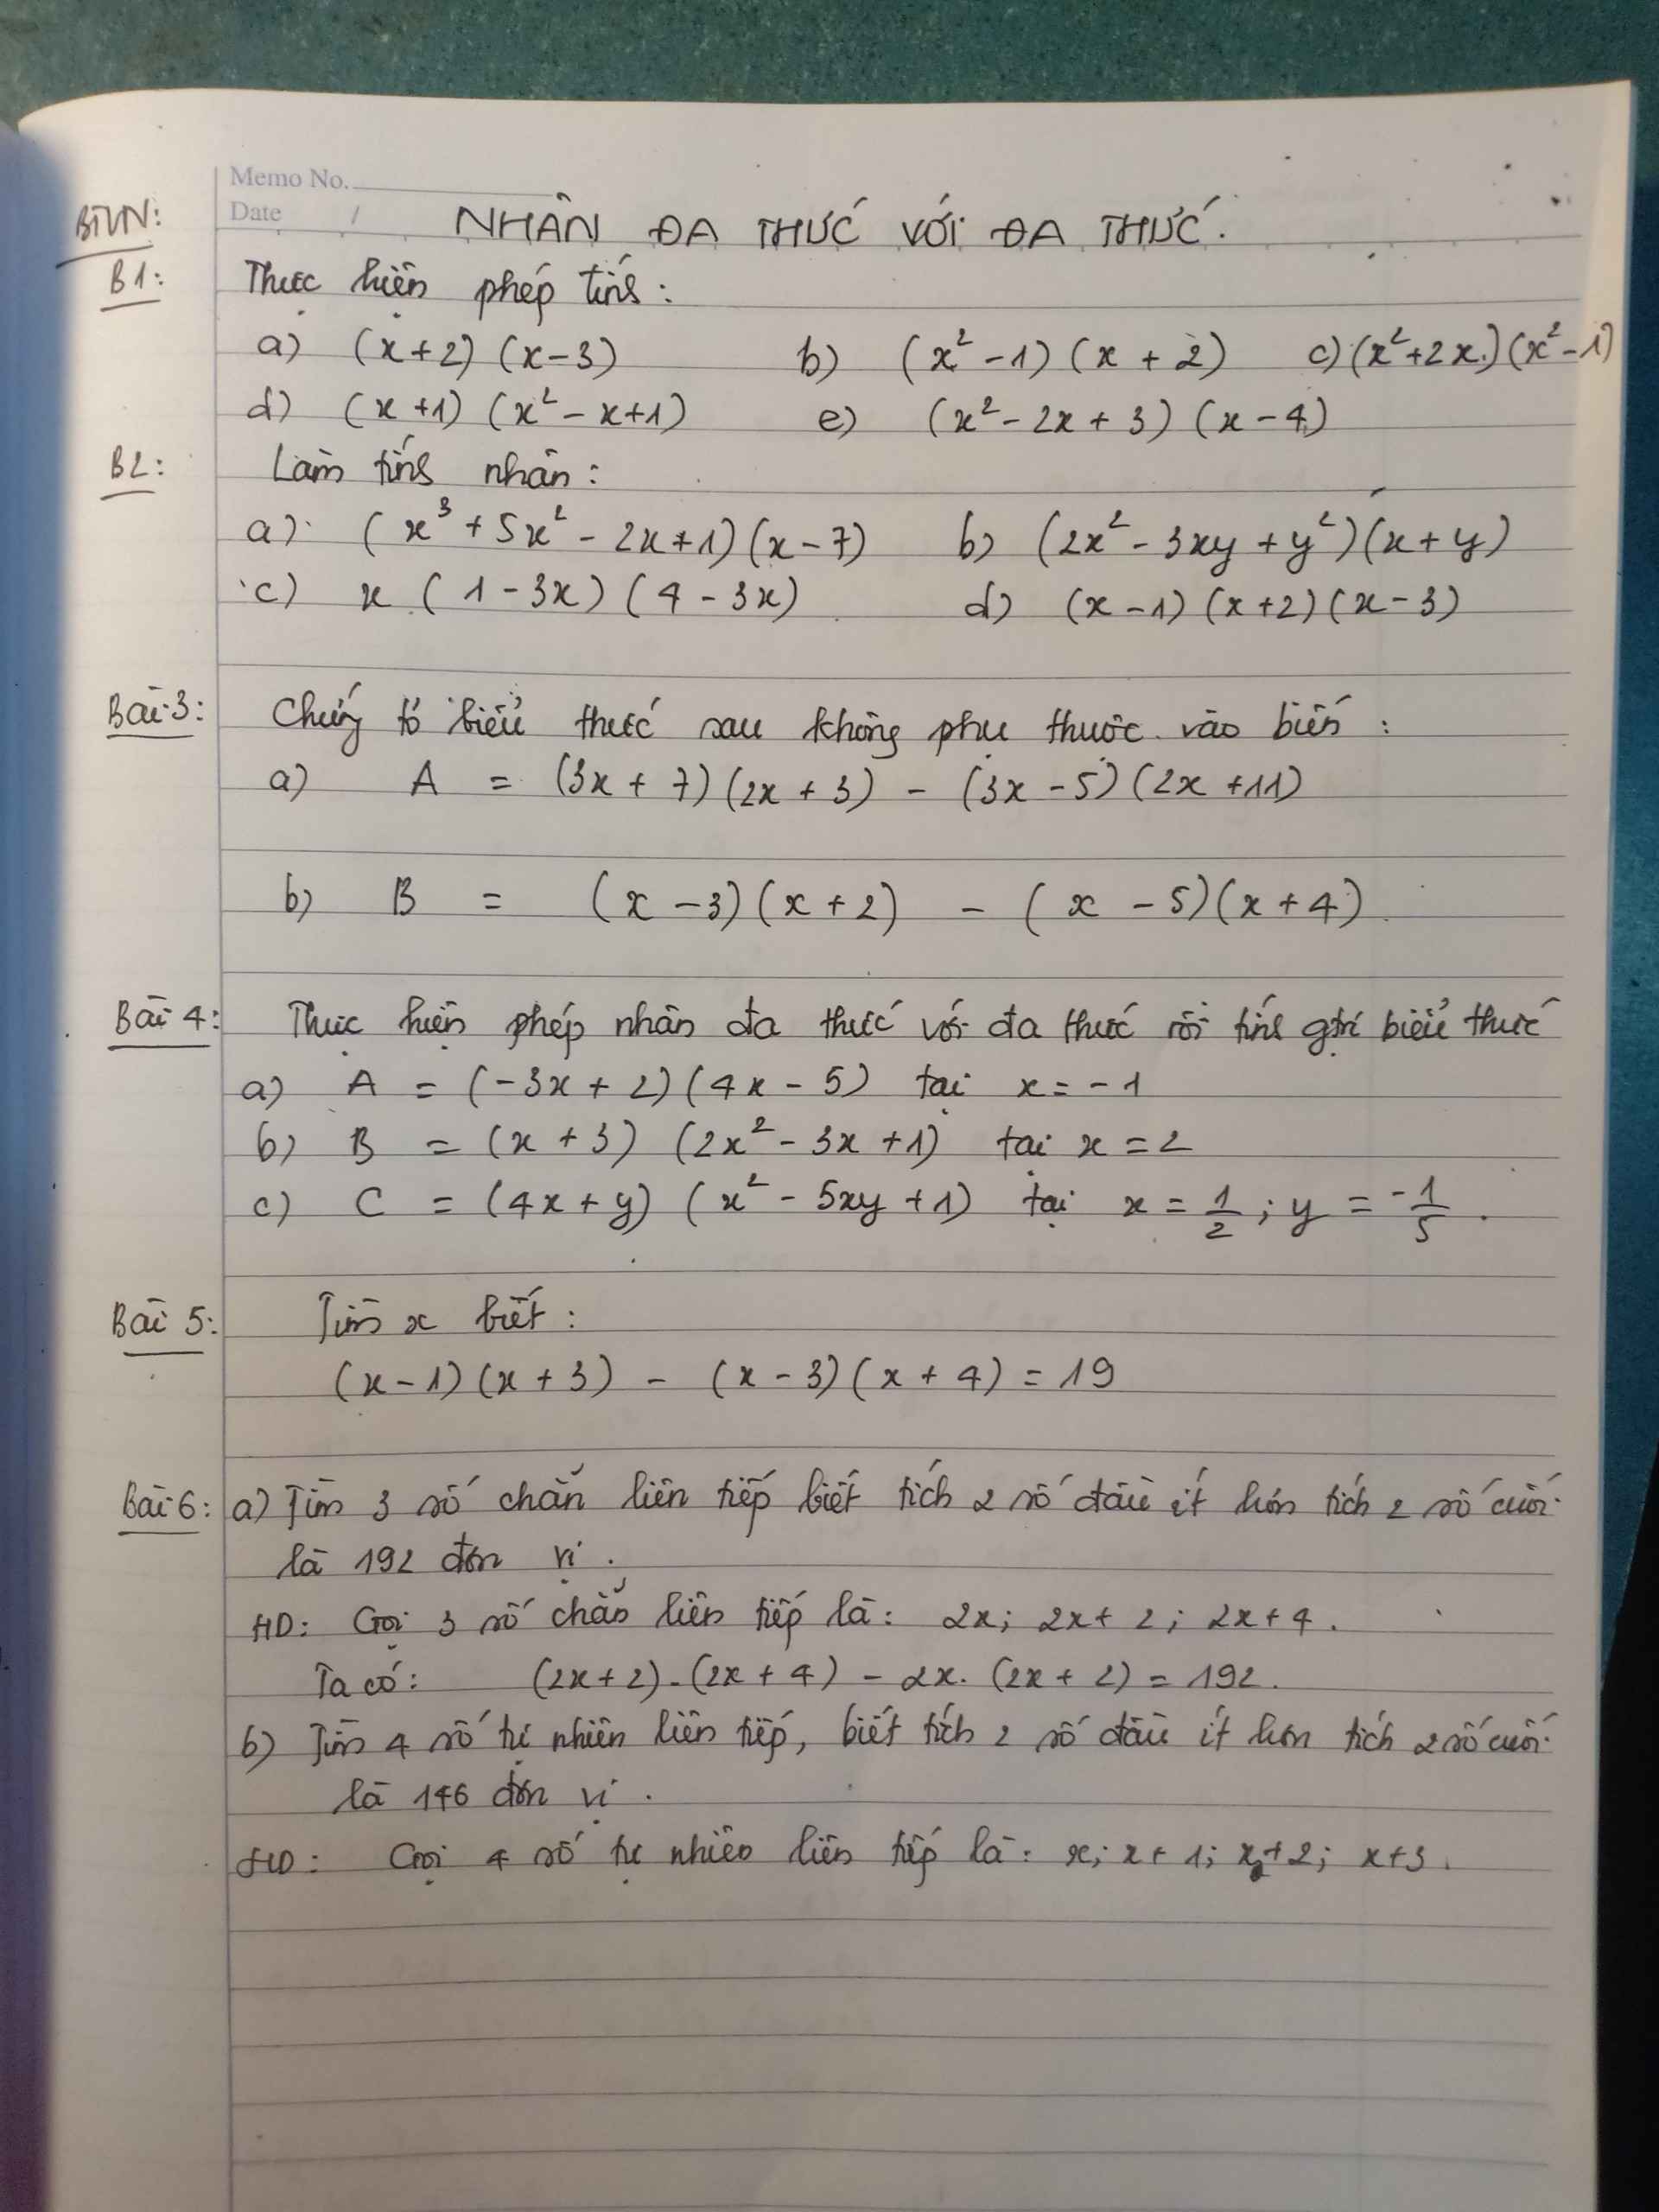 Memo No.
Date /
BTVN: NHÂN ĐA THỨC VỚI ĐA THỨC.
B1: Thực hiện phép tính:
a) (x+2)(x-3) b) (x²-1)(x+2) c) (x²+2x)(x²-1)
d) (x+1)(x²-x+1) e) (x²-2x+3)(x-4)
B2: Làm tính nhân:
a) (x³+5x²-2x+1)(x-7) b) (2x²-3xy+y²)(x+y)
c) x(1-3x)(4-3x) d) (x-1)(x+2)(x-3)
Bài 3: Chứng tỏ biểu thức sau không phụ thuộc vào biến:
a) A = (3x+7)(2x+3) - (3x-5)(2x+11)
b) B = (x-3)(x+2) - (x-5)(x+4)
Bài 4: Thực hiện phép nhân đa thức với đa thức rồi tính gtrị biểu thức
a) A = (-3x+2)(4x-5) tại x=-1
b) B = (x+3)(2x²-3x+1) tại x=2
c) C = (4x+y)(x²-5xy+1) tại x = 1/2; y = -1/5.
Bài 5: Tìm x biết:
(x-1)(x+3) - (x-3)(x+4) = 19
Bài 6: a) Tìm 3 số chẵn liên tiếp biết tích 2 số đầu ít hơn tích 2 số cuối
là 192 đơn vị.
HD: Gọi 3 số chẵn liên tiếp là: 2x; 2x+2; 2x+4.
Ta có: (2x+2).(2x+4) - 2x.(2x+2) = 192.
b) Tìm 4 số tự nhiên liên tiếp, biết tích 2 số đầu ít hơn tích 2 số cuối
là 146 đơn vị.
HD: Gọi 4 số tự nhiên liên tiếp là: x; x+1; x+2; x+3.